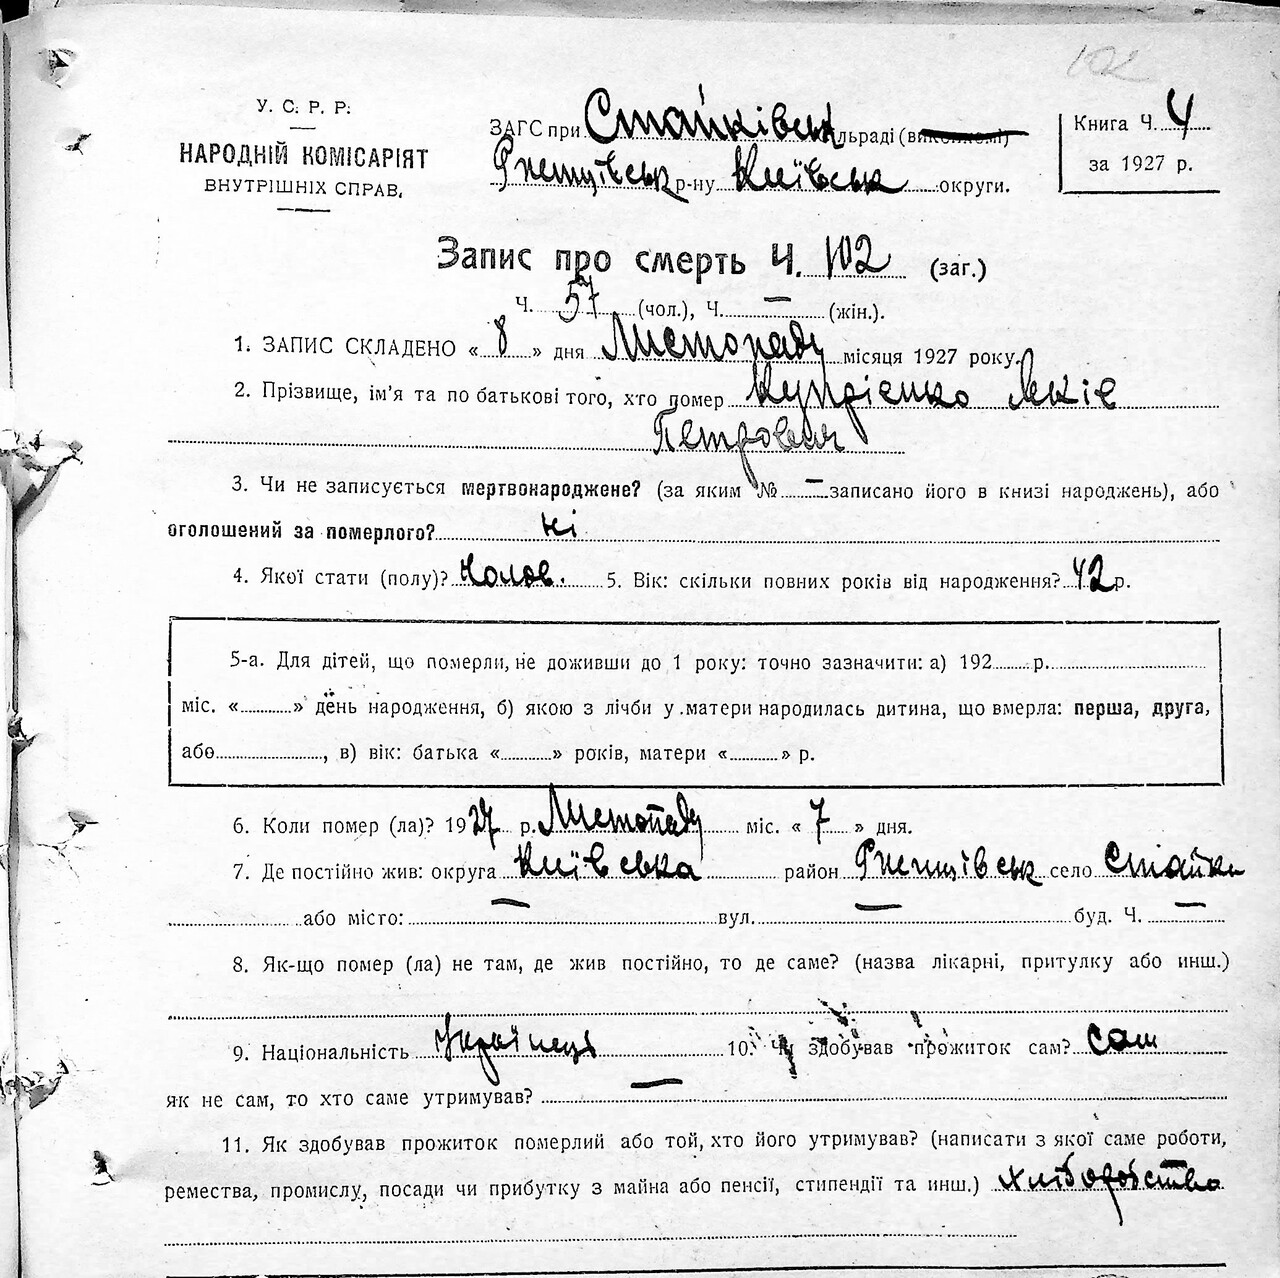 102
У. С. Р. Р.
НАРОДНІЙ КОМІСАРІЯТ
ВНУТРІШНІХ СПРАВ.
ЗАГС при Стайківськ льраді (виконкомі)
Ржищівськ р-ну Київськ округи.
Книга Ч. 4
за 1927 р.
Запис про смерть Ч. 102 (заг.)
Ч. 57 (чол.), Ч. — (жін.).
1. ЗАПИС СКЛАДЕНО « 8 » дня Листопаду місяця 1927 року.
2. Прізвище, ім'я та по батькові того, хто помер Купрієнко Яків
Петрович
3. Чи не записується мертвонароджене? (за яким № — записано його в книзі народжень), або
оголошений за померлого? ні
4. Якої стати (полу)? Чолов. 5. Вік: скільки повних років від народження? 42 р.
5-а. Для дітей, що померли, не доживши до 1 року: точно зазначити: а) 192 р.
міс. « » день народження, б) якою з лічби у матери народилась дитина, що вмерла: перша, друга,
або , в) вік: батька « » років, матери « » р.
6. Коли помер (ла)? 1927 р. Листопаду міс. « 7 » дня.
7. Де постійно жив: округа Київська район Ржищівськ село Стайки
або місто: — вул. — буд. Ч. —
8. Як-що помер (ла) не там, де жив постійно, то де саме? (назва лікарні, притулку або инш.)
9. Національність Українець 10. Чи здобував прожиток сам? сам
як не сам, то хто саме утримував? —
11. Як здобував прожиток померлий або той, хто його утримував? (написати з якої саме роботи,
ремества, промислу, посади чи прибутку з майна або пенсії, стипендії та инш.) хліборобство